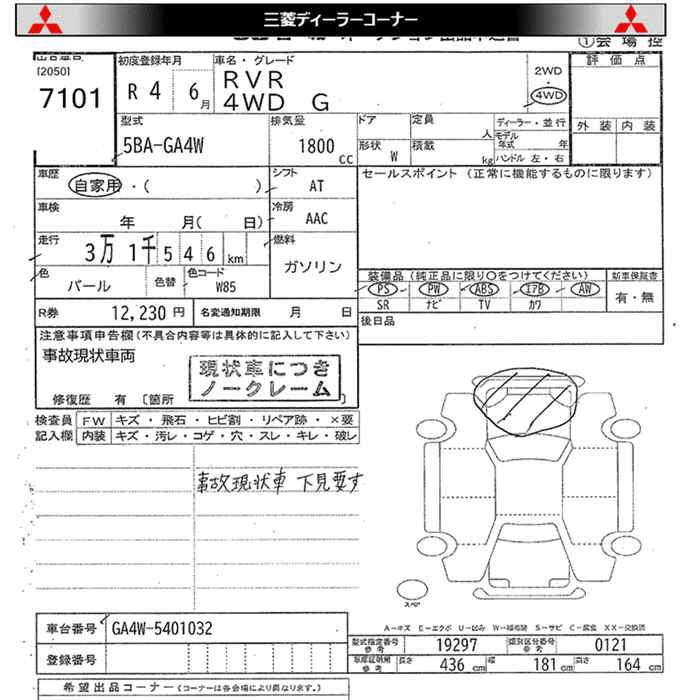 三菱ディーラーコーナー
①会場控
[2050]
7101
初度登録年月
R 4 6月
車名・グレード
RVR
4WD G
2WD
4WD
評価点
外装 内装
型式
5BA-GA4W
排気量
1800 CC
ドア
定員 人
形状 W
積載 kg
ディーラー・並行
モデル年式 年
ハンドル 左・右
車歴
自家用・( )
シフト
AT
セールスポイント (正常に機能するものに限ります)
車検
年 月( 日)
冷房
AAC
走行
3万 1千 5 4 6 km
燃料
ガソリン
色
パール
色替
色コード
W85
装備品 (純正品に限り○をつけてください)
新車保証書
PS PW ABS エアB AW
SR ナビ TV カワ
有・無
R券 12,230 円
名変通知期限 月 日
後日品
注意事項申告欄 (不具合内容等は具体的に記入して下さい)
事故現状車両
現状車につき
ノークレーム
修復歴 有 [箇所 ]
検査員記入欄
FW キズ・飛石・ヒビ割・リペア跡・×要
内装 キズ・汚レ・コゲ・穴・スレ・キレ・破レ
事故現状車 下見要す
スペア
車台番号 GA4W-5401032
A－キズ E－エクボ U－凹み W－補修跡 S－サビ C－腐食 XX－交換済
型式指定番号 参考 19297
類別区分番号 参考 0121
登録番号
車庫証明用 参考
長さ 436 cm
幅 181 cm
高さ 164 cm
希望出品コーナー (コーナーは各会場により異なります。)